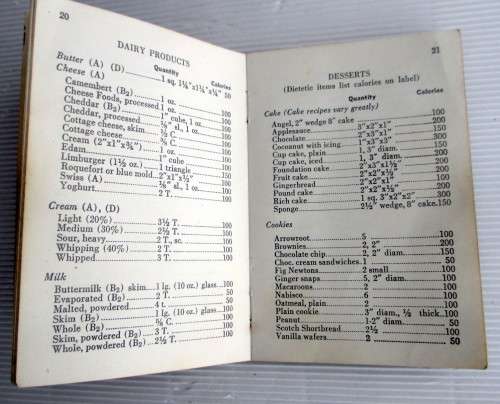 20
DAIRY PRODUCTS
Quantity Calories
Butter (A) (D) 1 sq. 50
Cheese (A)
Camembert (B₂) 1 oz. 100
Cheese Foods, processed 1 oz. 100
Cheddar (B₂) 1" cube, 1 oz. 100
Cheddar, processed sl., 1 oz. 100
Cottage cheese, skim C. 100
Cottage cheese C. 100
Cream (2"x1"x¾") 1 100
Edam 1" cube 100
Limburger (1½ oz.) 1 triangle 100
Roquefort or blue mold 2"x1"x½" 100
Swiss (A) sl., 1 oz. 100
Yoghurt 2 T.
Cream (A), (D)
Light (20%) 3½ T. 100
Medium (30%) 2½ T. 100
Sour, heavy 2 T., sc. 100
Whipping (40%) 2 T. 100
Whipped 3 T. 100
Milk
Buttermilk (B₂) skim 1 lg. (10 oz.) glass 100
Evaporated (B₂) 2 T. 50
Malted, powdered 4 t. 50
Skim (B₂) 1 lg. (10 oz.) glass 100
Whole (B₂) C. 100
Skim, powdered (B₂) 3 T. 100
Whole, powdered (B₂) 2 T. 100
21
DESSERTS
(Dietetic items list calories on label)
Quantity Calories
Cake (Cake recipes vary greatly)
Angel, 2" wedge 8" cake 100
Applesauce 3"x2"x1" 200
Chocolate 2"x2"x1" 200
Coconut with icing 1"x3"x3" 100
Cup cake, plain 1, 3" diam. 100
Cup cake, iced 1, 3" diam. 200
Foundation cake 2"x3"x1½" 200
Fruit cake 2"x2"x½" 200
Gingerbread 2"x2"x1" 100
Pound cake 2"x2"x½" 200
Rich cake 1 sq. 3"x2"x2" 300
Sponge 2½" wedge, 8" cake 150
Cookies
Arrowroot 5 100
Brownies 2, 2" 200
Chocolate chip 2, 2" diam. 150
Choc. cream sandwiches 1 50
Fig Newtons 2 small 100
Ginger snaps 5, 2" diam. 100
Macaroons 2 100
Nabisco 6 100
Oatmeal, plain 2 100
Plain cookie 3" diam., ½ thick 100
Peanut 1-2" diam. 50
Scotch Shortbread 2½ 100
Vanilla wafers 2 50